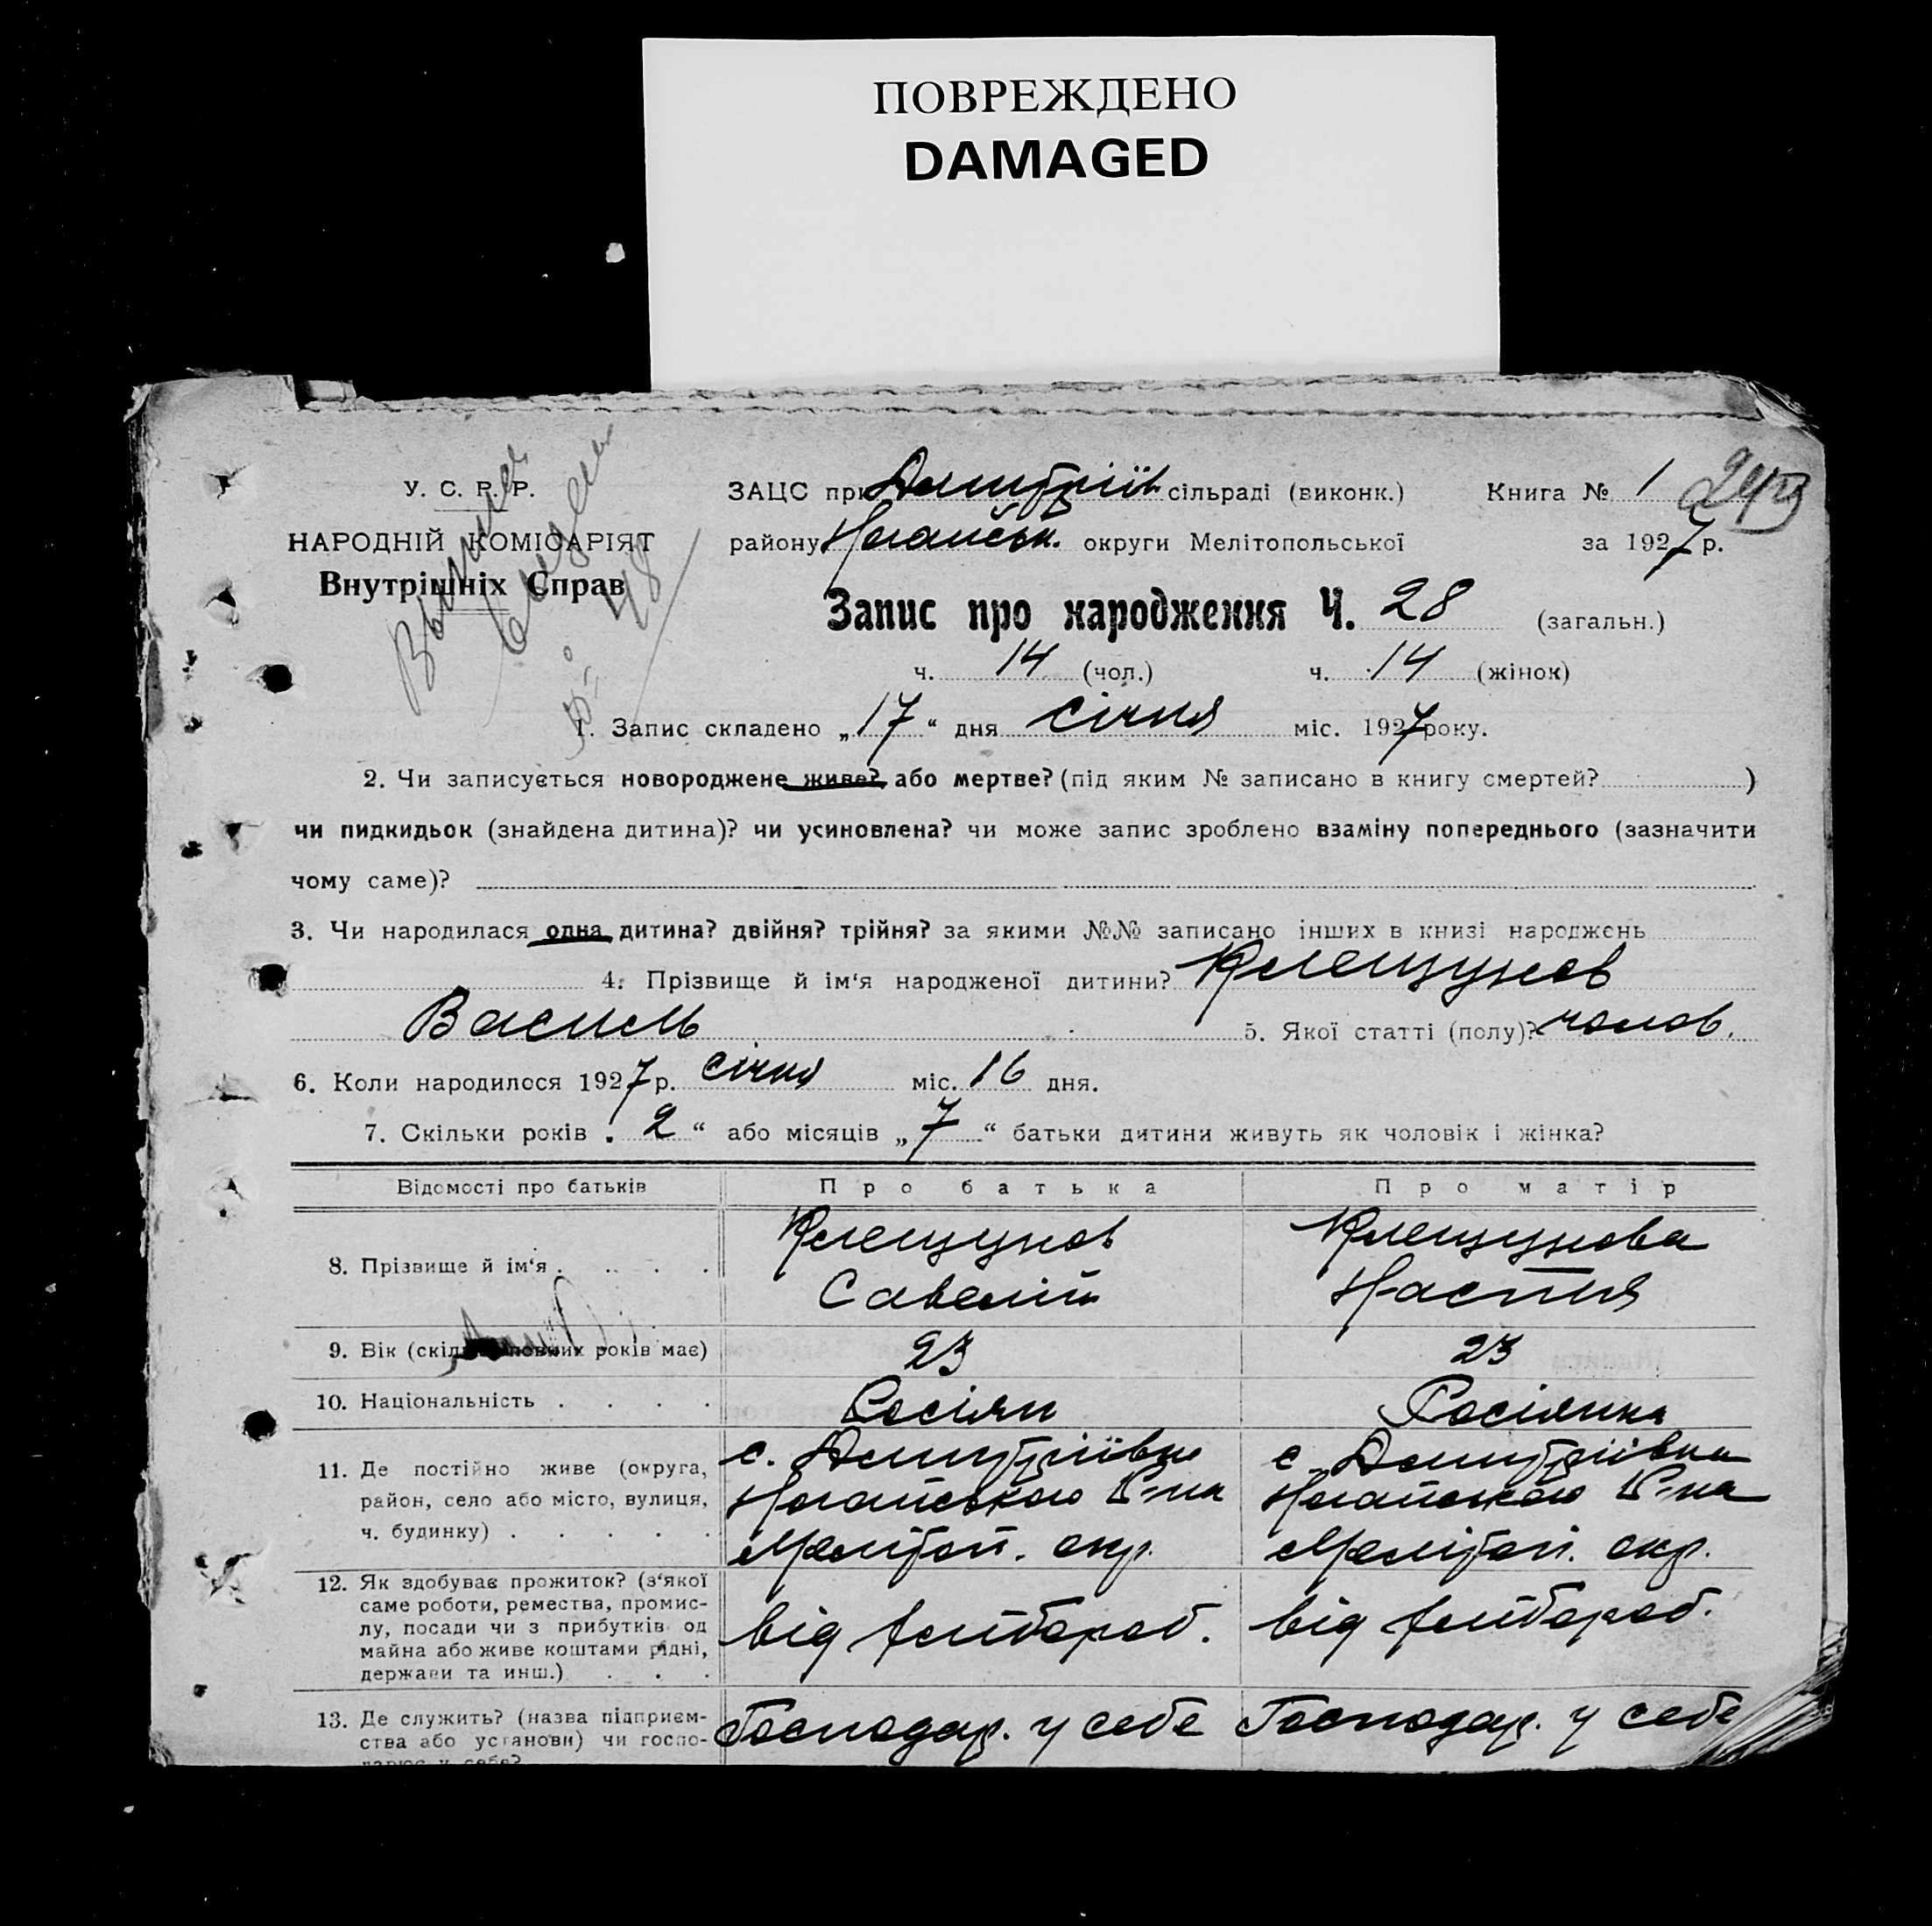 ПОВРЕЖДЕНО
DAMAGED
У. С. Р. Р.
НАРОДНІЙ КОМІСАРІЯТ
Внутрішніх Справ
ЗАЦС при Дмитріїв сільраді (виконк.) Книга № 1
району Ногайськ. округи Мелітопольської за 1927 р.
Запис про народження Ч. 28 (загальн.)
ч. 14 (чол.) ч. 14 (жінок)
1. Запис складено „17“ дня січня міс. 1927 року.
2. Чи записується новороджене живе? або мертве? (під яким № записано в книгу смертей? )
чи пидкидьок (знайдена дитина)? чи усиновлена? чи може запис зроблено взаміну попереднього (зазначити
чому саме)?
3. Чи народилася одна дитина? двійня? трійня? за якими №№ записано інших в книзі народжень
4. Прізвище й ім‘я народженої дитини? Клещунов
Василь 5. Якої статті (полу)? чолов.
6. Коли народилося 1927 р. січня міс. 16 дня.
7. Скільки років „2“ або місяців „7“ батьки дитини живуть як чоловік і жінка?
Відомості про батьків Про батька Про матір
8. Прізвище й ім‘я . . . . Клещунов Савелій Клещунова Настия
9. Вік (скільки повних років має) 23 23
10. Національність . . . . Росіян Росіянка
11. Де постійно живе (округа,
район, село або місто, вулиця,
ч. будинку) . . . . .
с. Дмитріївка
Ногайського Р-на
Меліт
оп. окр.
с. Дмитріївка
Ногайського Р-на
Мелітоп. окр.
12. Як здобуває прожиток? (з‘якої
саме роботи, ремества, промис-
лу, посади чи з прибутків од
майна або живе коштами рідні,
держави та инш.) . . .
від хлібороб.
від хлібороб.
13. Де служить? (назва підприєм-
ства або установи) чи госпо-
дарює у себе?
Господар. у себе
Господар. у себе